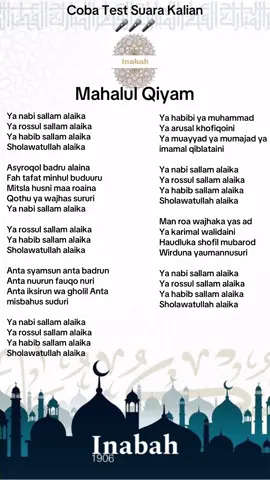 Coba Test Suara Kalian
Inabah
Mahalul Qiyam
Ya nabi sallam alaika
Ya rossul sallam alaika
Ya habib sallam alaika
Sholawatullah alaika
Asyroqol badru alaina
Fah tafat minhul buduuru
Mitsla husni maa roaina
Qothu ya wajhas sururi
Ya nabi sallam alaika
Ya rossul sallam alaika
Ya habib sallam alaika
Sholawatullah alaika
Anta syamsun anta badrun
Anta nuurun fauqo nuri
Anta iksirun wa gholil Anta
misbahus suduri
Ya nabi sallam alaika
Ya rossul sallam alaika
Ya habib sallam alaika
Sholawatullah alaika
Ya habibi ya muhammad
Ya arusal khofiqoini
Ya muayyad ya mumajad ya
imamal qiblataini
Ya nabi sallam alaika
Ya rossul sallam alaika
Ya habib sallam alaika
Sholawatullah alaika
Man roa wajhaka yas ad
Ya karimal walidaini
Haudluka shofil mubarod
Wirduna yaumannusuri
Ya nabi sallam alaika
Ya rossul sallam alaika
Ya habib sallam alaika
Sholawatullah alaika
Inabah
1906